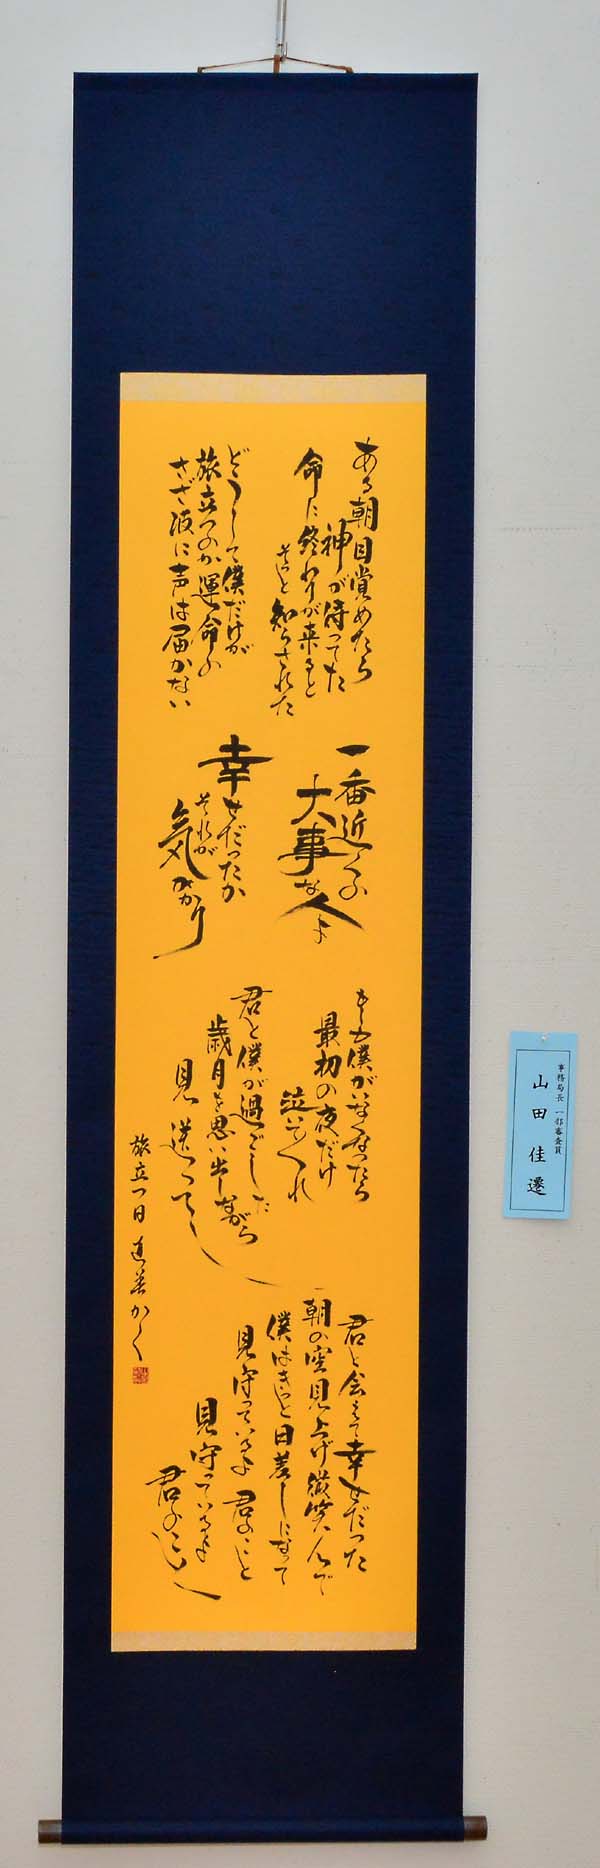 ある朝目覚めたら
神が待ってた
命に終わりが来ると
そっと知らされた
どうして僕だけが
旅立つのか運命の
さざ波に声は届かない
一番近くの
大事な人よ
幸せだったか
それが
気がかり
もしも僕がいなくなったら
最初の夜だけ
泣いてくれ
君と僕が過ごした
歳月を思い出しながら
見送って
君と会えて幸せだった
朝の空見上げ微笑んで
僕はきっと日差しになって
見守っているよ 君のこと
見守っているよ
君のこと
旅立つ日 かく
事務局長 一部審査員
山田佳遷